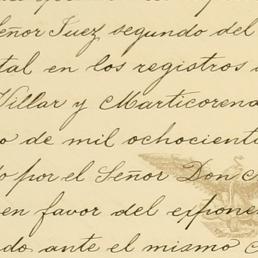 eñor Juez segundo del
tal en los registros
Villar y Marticorena
o de mil ochocient
o por el Señor Don
en favor del expone
do ante el mismo